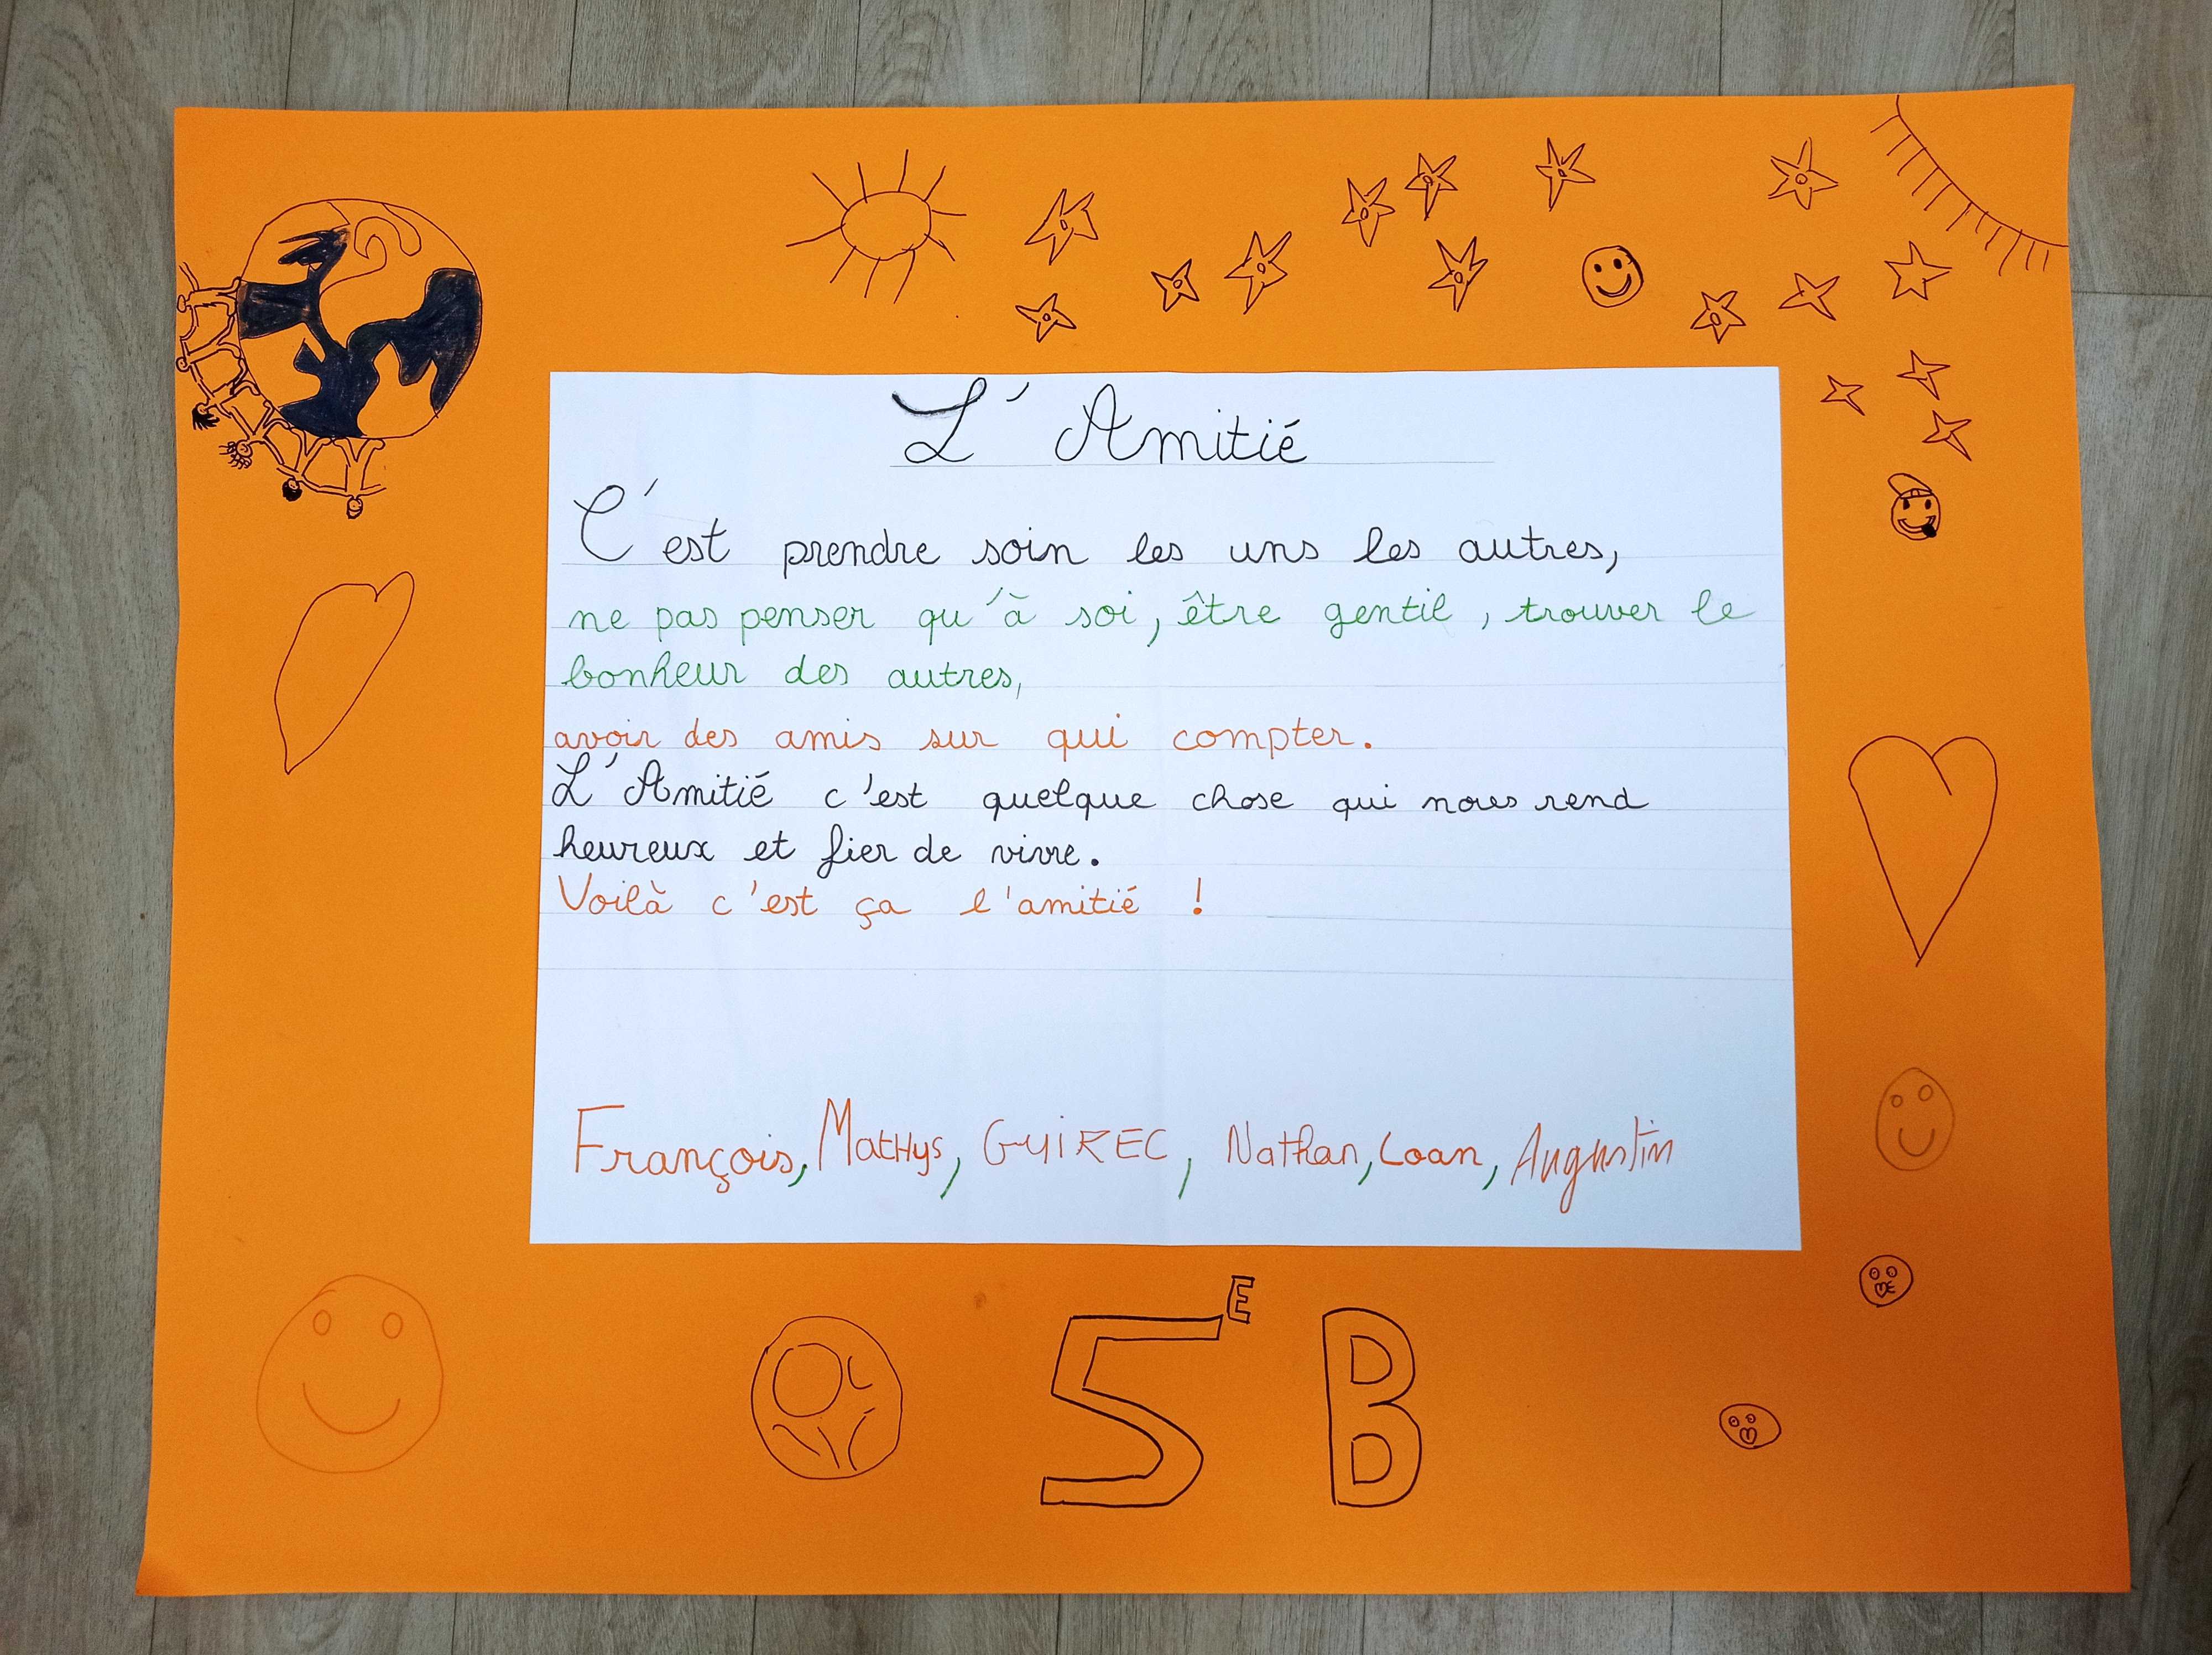 L'Amitié
C'est prendre soin les uns les autres,
ne pas penser qu'à soi, être gentil, trouver le
bonheur des autres,
avoir des amis sur qui compter.
L'Amitié c'est quelque chose qui nous rend
heureux et fier de vivre.
Voilà c'est ça l'amitié !
François, Mathys, GUIREC, Nathan, Loan, Augustin
5E B